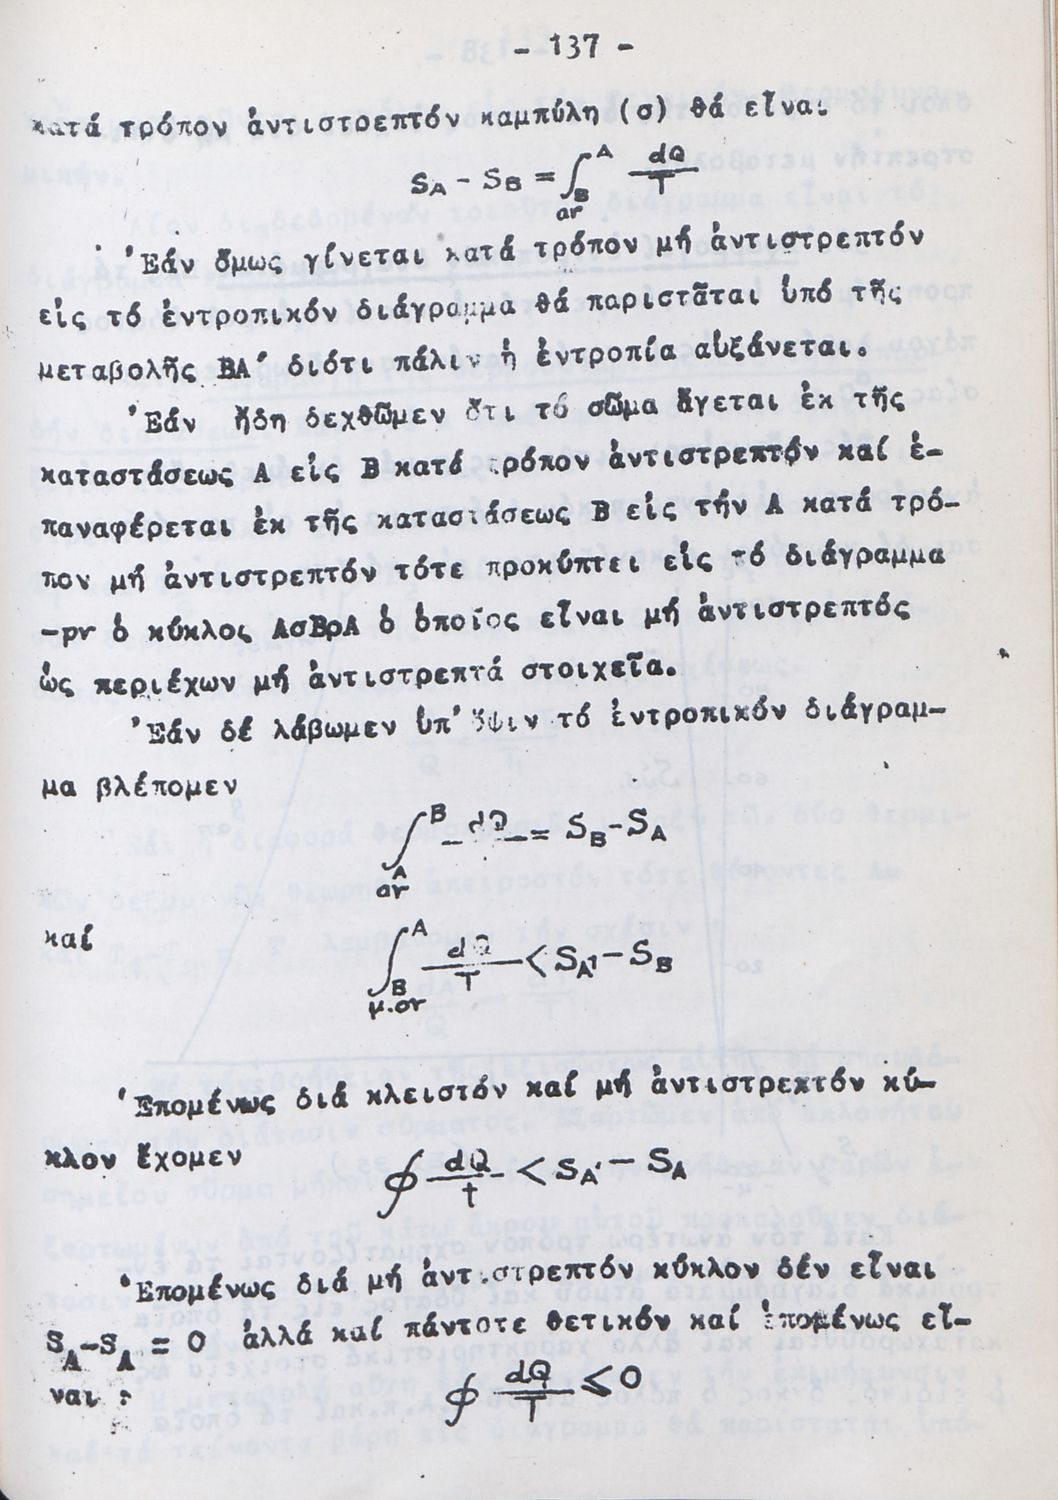 - 137 -
κατά τρόπον ἀντιστρεπτόν καμπύλη (σ) θά εἶναι
S_A - S_B = ∫_B^A dQ/T
αr
'Εάν ὅμως γίνεται κατά τρόπον μή ἀντιστρεπτόν
εἰς τό ἐντροπικόν διάγραμμα θά παριστᾶται ὑπό τῆς
μεταβολῆς BA' διότι πάλιν ἡ ἐντροπία αὐξάνεται.
'Εάν ἤδη δεχθῶμεν ὅτι τό σῶμα ἄγεται ἐκ τῆς
καταστάσεως A εἰς B κατά τρόπον ἀντιστρεπτόν καί ἐ-
παναφέρεται ἐκ τῆς καταστάσεως B εἰς τήν A κατά τρό-
πον μή ἀντιστρεπτόν τότε προκύπτει εἰς τό διάγραμμα
-pv ὁ κύκλος AσBρA ὁ ὁποῖος εἶναι μή ἀντιστρεπτός
ὡς περιέχων μή ἀντιστρεπτά στοιχεῖα.
'Εάν δέ λάβωμεν ὑπ' ὄψιν τό ἐντροπικόν διάγραμ-
μα βλέπομεν
∫_A^B dQ/ = S_B - S_A
αr
καί
∫_B^A dQ/T < S_A' - S_B
μ.αr
'Επομένως διά κλειστόν καί μή ἀντιστρεκτόν κύ-
κλον ἔχομεν ∮ dQ/t < S_A' - S_A
'Επομένως διά μή ἀντιστρεπτόν κύκλον δέν εἶναι
S_A-S_A = 0 ἀλλά καί πάντοτε θετικόν καί ἑπομένως εἶ-
ναι : ∮ dQ/T ≤ 0